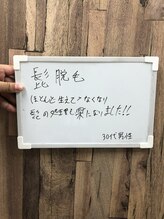 髭脱毛
ほとんど生えてこなくなり
髭の処理が楽になりました!!
30代男性